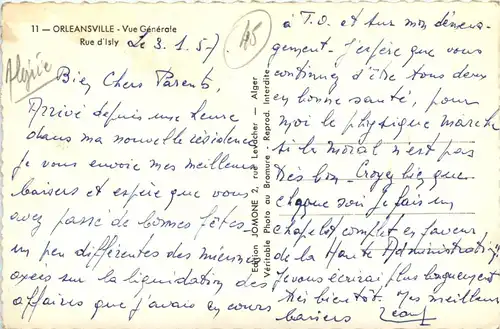 11 — ORLEANSVILLE - Vue Générale
Rue d'Isly
Le 3.1.57
45
Algérie
Bien Chers Parents,
Arrivé depuis une heure
dans ma nouvelle résidence
je vous envoie mes meilleurs
baisers et espère que vous
avez passé de bonnes fêtes
un peu différentes des miennes
axées sur la liquidation des
affaires que j'avais en cours
Edition JOMONE 2, rue Levacher — Alger
Véritable Photo au Bromure - Reprod. Interdite
à T.O. et sur mon déména-
gement - J'espère que vous
continuez d'être tous deux
en bonne santé, pour
moi le physique marche
si le moral n'est pas
très bon - Croyez bien que
chaque soir je fais un
chapelet complet en faveur
de la Haute Administration.
Je vous écrirai plus longuement
très bientôt. Mes meilleurs
baisers